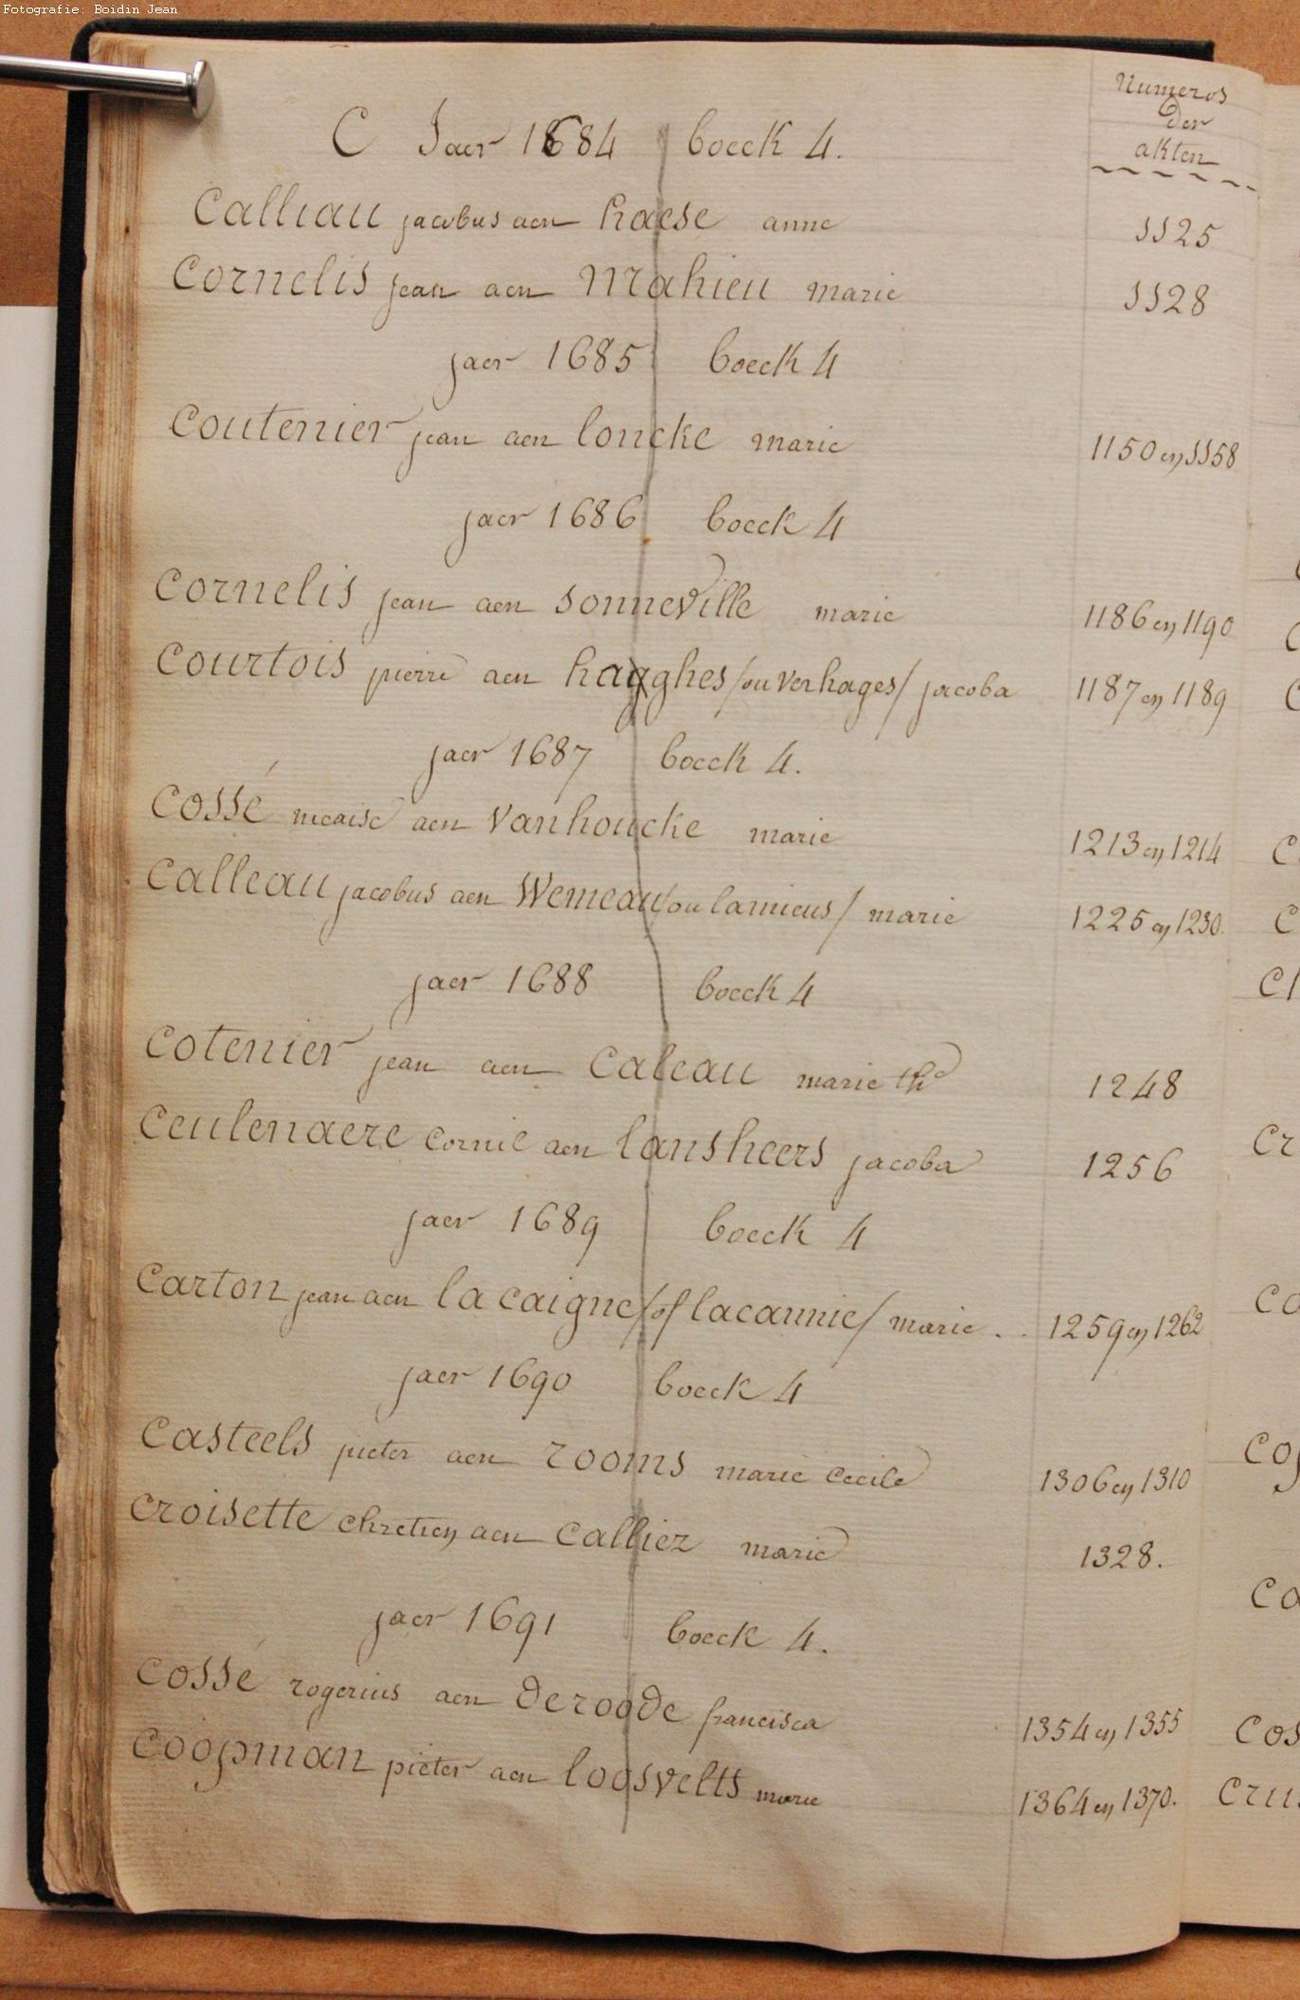 Fotografie: Boidin Jean
Numeros
der
akten
C Jaer 1684 boeck 4.
Calliau jacobus aen haese anne 1125
Cornelis jean aen Mahieu marie 1128
jaer 1685 boeck 4
Coutenier jean aen loncke marie 1150 en 1158
jaer 1686 boeck 4
Cornelis jean aen sonneville marie 1186 en 1190
Courtois pierre aen hagghes /ou verhages/ jacoba 1187 en 1189
jaer 1687 boeck 4.
Cossé aen Vanhoucke marie 1213 en 1214
Calleau jacobus aen Wemeau /ou lamieus/ marie 1225 en 1230.
jaer 1688 boeck 4
Cotenier jean aen Caleau marie the 1248
Ceulenaere Cornil aen lansheers jacoba 1256
jaer 1689 boeck 4
Carton jean aen la caigne /of lacaunie/ marie . . 1259 en 1262
jaer 1690 boeck 4
Casteels pieter aen rooms marie cecile 1306 en 1310
Croisette chretien aen Calliez marie 1328.
jaer 1691 boeck 4.
Cossé rogerius aen Deroode francisca 1354 en 1355
Coopman pieter aen loosvelts marie 1364 en 1370.